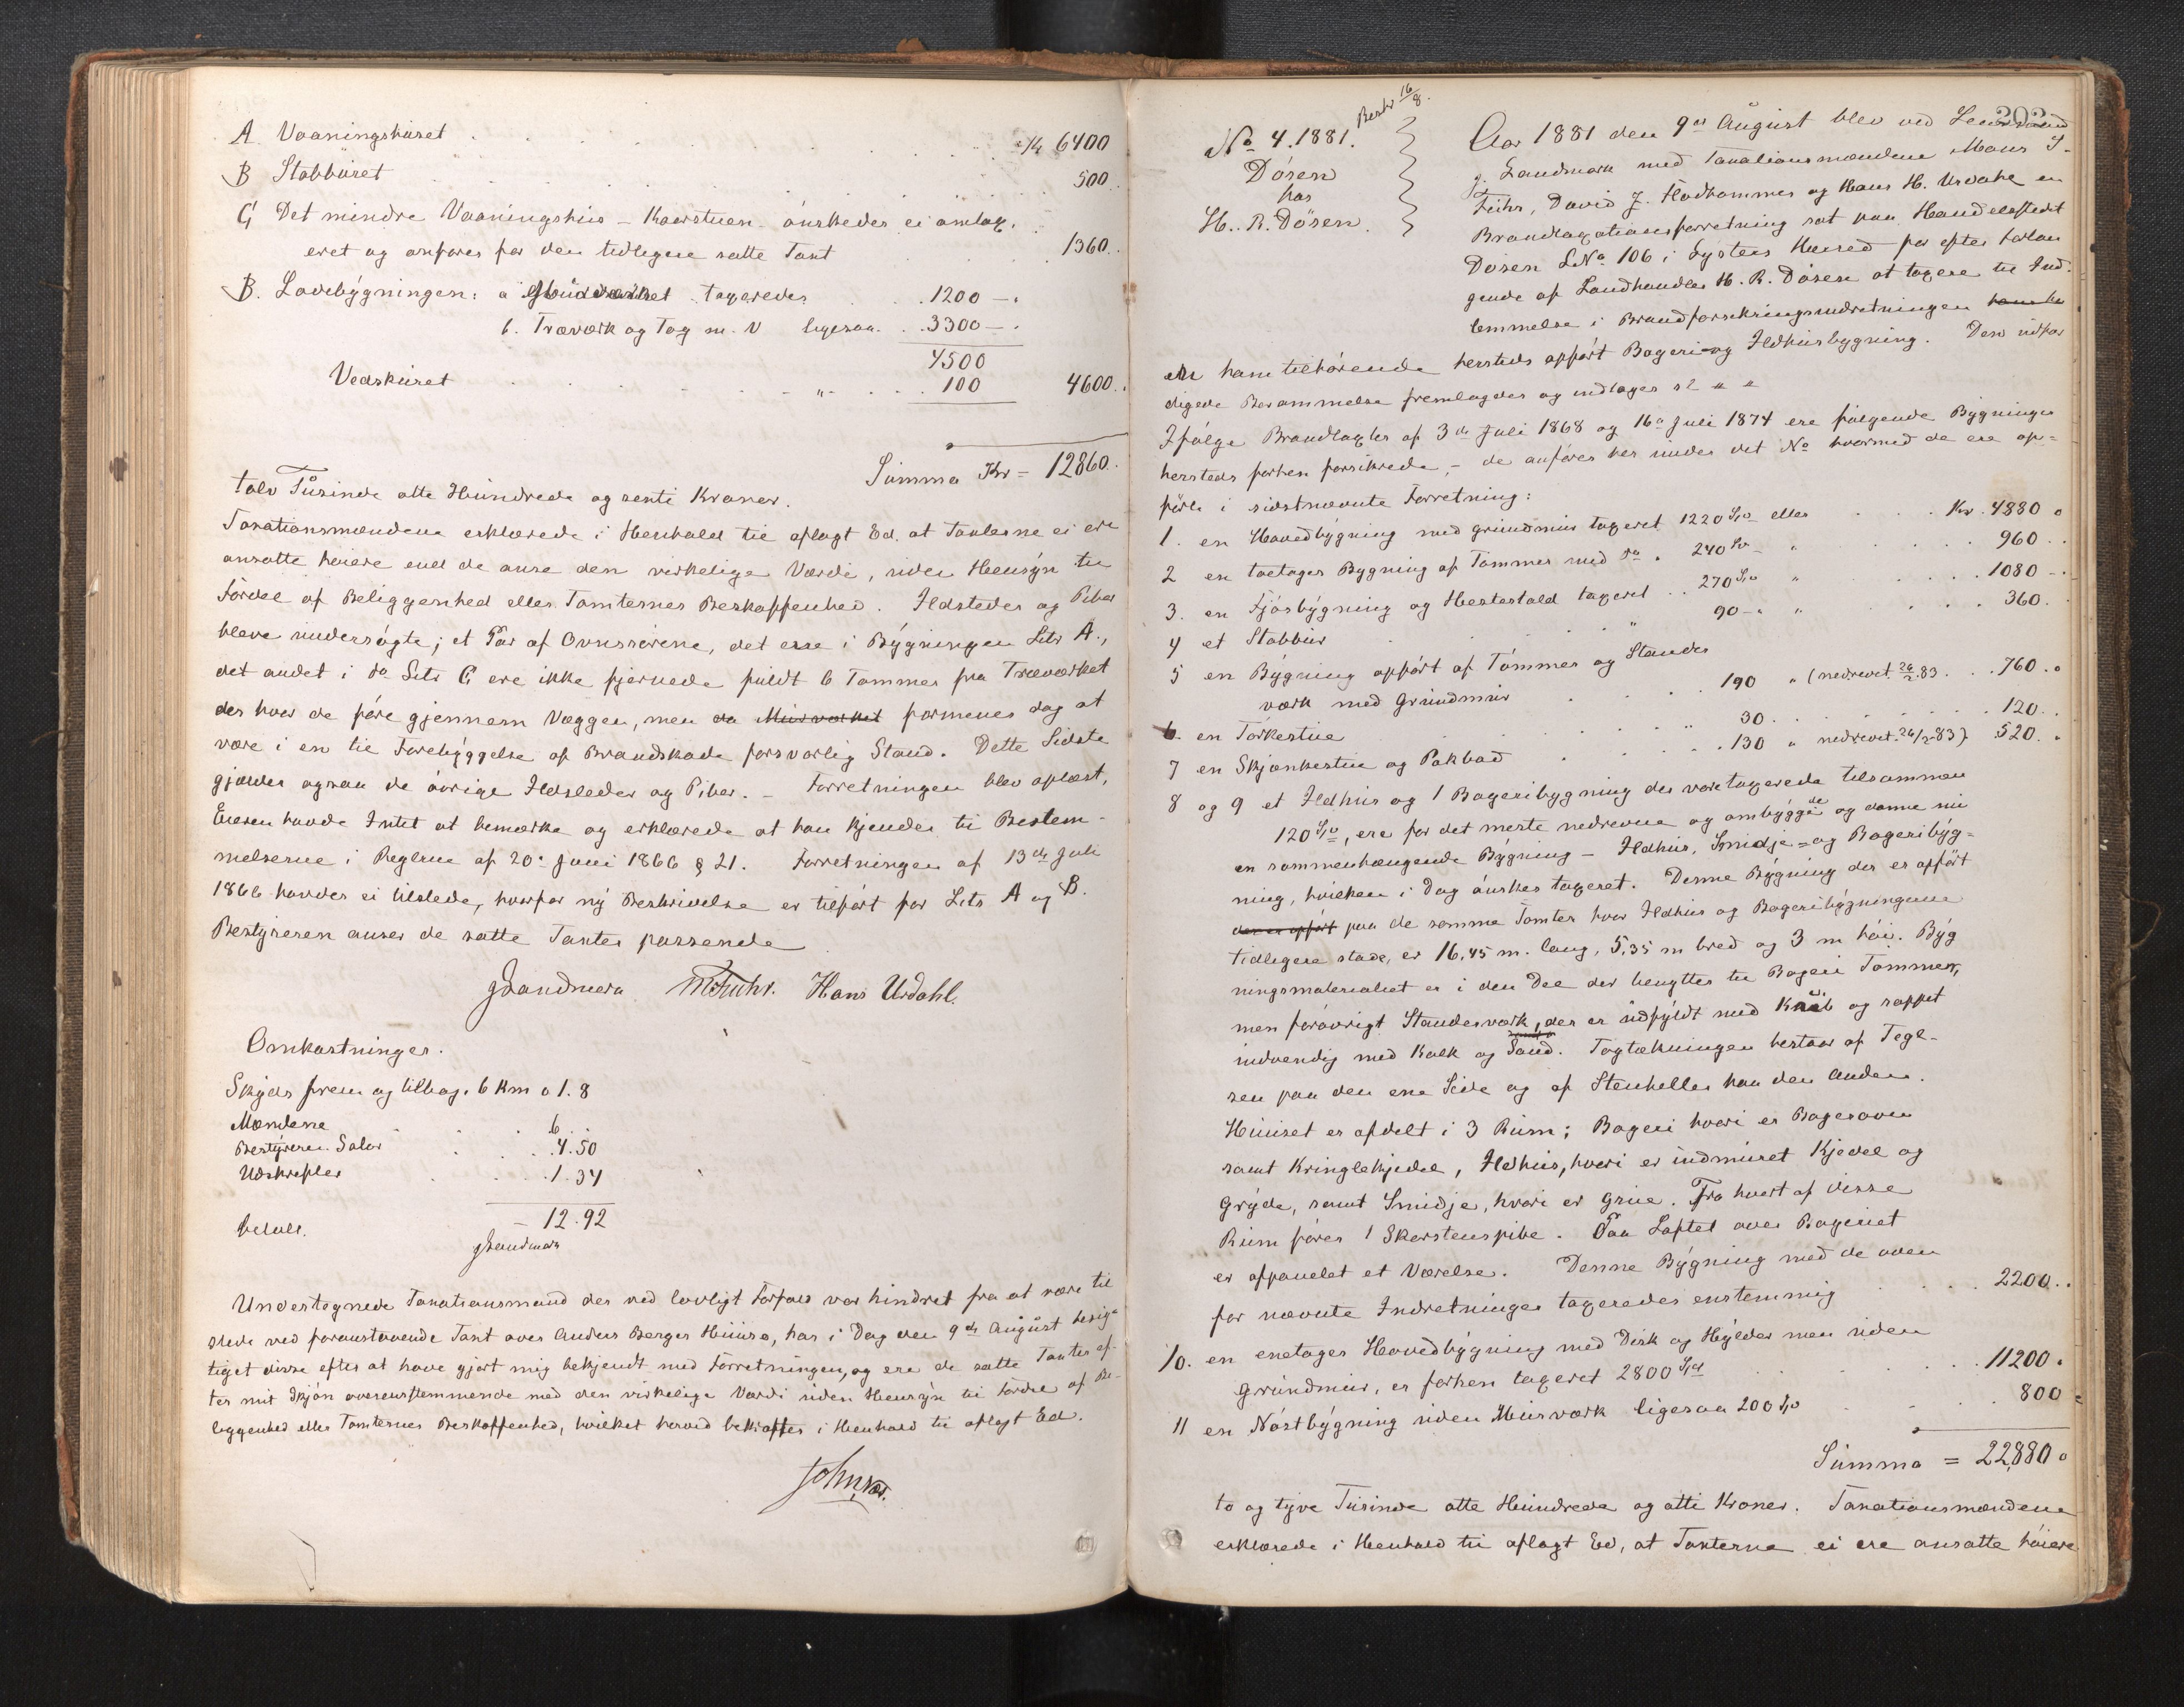 A. Vaaningshuset 6400
B Stabburet 500
C Det mindre Vaaningshus - Kaarstuen - ønskedes ei omtax.
eret og anføres for den tidligere satte Taxt 1360.
D. Ladebygningen: a taxeredes 1200 -
b. Træværk og Tag m. V ligesaa 3300 -
4500
Vedskuret " 100 4600.
Summa Kr = 12860.
tolv Tusinde otte Hundrede og sexti Kroner.
Taxationsmændene erklærede i Henhold til aflagt Ed at Taxterne ei ere
ansatte høiere end de anse den virkelige Værdi, uden Hensyn til
Fordel af Beliggenhed eller Tomternes Beskaffenhed. Ildsteder og Piber
bleve undersøgte; et Par af Ovnsrørene, det ene i Bygningen Litr A.,
det andet i do Litr C ere ikke fjernede fuldt 6 Tommer fra Træværket
der hvor de føre gjennem Væggen, men da Murværket formenes dog at
være i en til Forebyggelse af Brandskade forsvarlig Stand. Dette Sidste
gjælder ogsaa de øvrige Ildsteder og Piber. - Forretningen blev oplæst,
Eieren havde Intet at bemærke og erklærede at han kjender til Bestem-
melserne i Reglerne af 20de Juni 1866 § 21. Forretningen af 13de Juli
1866 havdes ei tilstede, hvorfor ny Beskrivelse er tilført for Litr A og B.
Bestyreren anser de satte Taxter passende
JLandmark Hans Urdahl.
Omkostninger.
Skyds frem og tilbage 6 Km 1.8
Mændene 6.
Bestyreren Salær 4.50
Udskrifter 1.34
betalt. - 12.92
JLandmark
Undertegnede Taxationsmand der ved lovligt Forfald var hindret fra at være til
stede ved foranstaaende Taxt over Anders Berges Huuse, har i Dag den 9de August besig-
tiget disse efter at have gjort mig bekjendt med Forretningen, og ere de satte Taxter ef-
ter mit Skjøn overensstemmende med den virkelige Værdi uden Hensyn til Fordel af Be-
liggenhed eller Tomternes Beskaffenhed, hvilket herved bekræftes i Henhold til aflagt Ed.
303
Beskr 16/8.
No 4. 1881.
Døsen
hos
H. R. Døsen.
Aar 1881 den 9de August blev ved Lensmand
J. Landmark med Taxationsmændene Mons T.
Fuhr, David J. Flodhammer og Hans H. Urdahl en
Brandtaxationsforretning sat paa Handelsstedet
Døsen LNo 106 i Lysters Herred for efter Forlan
gende af Landhandler H. R. Døsen at taxere til Ind-
lemmelse i Brandforsikringsindretningen
en ham tilhørende hersteds opført Bageri og Ildhusbygning. Den udfær
digede Berammelse fremlagdes og indtages
Ifølge Brandtaxter af 3de Juli 1868 og 16de Juli 1874 ere følgende Bygninger
hersteds forhen forsikrede, - de anføres her under det No hvormed de ere op-
førte i sidstnævnte Forretning:
1. en Hovedbygning med Grundmur taxeret 1220 Spd eller Kr. 4880
2 en toetages Bygning af Tømmer med do 240 Spd " 960
3. en Fjøsbygning og Hestestald taxeret 270 Spd " 1080
4 et Stabbur " 90 " 360.
5 en Bygning opført af Tømmer og Stænder
værk med Grundmur 190 " (nedrevet 26/2.83 760.
6. en Tørkestue 30. 120.
7 en Skjænkestue og Pakbod 130 " nedrevet 26/2 83) 520.
8 og 9 et Ildhus og 1 Bageribygning der vare taxerede tilsammen
120 Spd, ere for det meste nedrevne og ombyggede og danne nu
en sammenhængende Bygning - Ildhus, Smidje- og Bageribyg-
ning, hvilken i Dag ønskes taxeret. Denne Bygning der er opført
der er opført paa de samme Tomter hvor Ildhus og Bageribygningerne
tidligere stode, er 16,45 m. lang, 5,35 m bred og 3 m høi. Byg
ningsmaterialiet er i den Del der benyttes til Bageri Tømmer,
men forøvrigt Stænderværk, der er udfyldt med Knub og rappet
indvendig med Kalk og Sand. Tagtækningen bestaar af Tegl-
sten paa den ene Side og af Stenheller paa den Anden.
Huuset er afdelt i 3 Rum; Bageri hvori er Bagerovn
samt Kringlekjedel, Ildhus, hvori er indmuret Kjedel og
Gryde, samt Smidje, hvori er Grue. Fra hvert af disse
Rum fører 1 Skorstenspibe. Paa Loftet over Bageriet
er afpanelet et Værelse. Denne Bygning med de oven
for nævnte Indretninger taxeredes enstemmig 2200.
10. en enetages Hovedbygning med Disk og Hylder men uden
Grundmur, er forhen taxeret 2800 Spd 11200.
11 en Nøstbygning uden Murværk ligesaa 200 Spd 800
Summa = 22,880
to og tyve Tusinde otte Hundrede og otti Kroner. Taxationsmændene
erklærede i Henhold til aflagt Ed, at Taxterne ei ere ansatte høiere